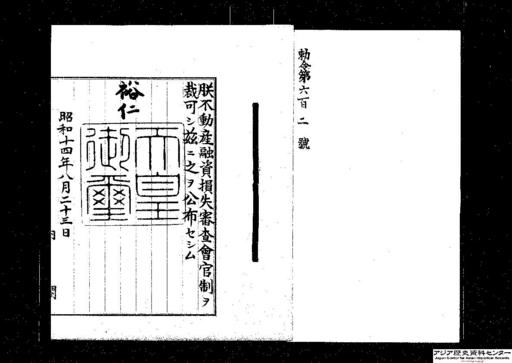 勅令第六百二號
朕不動產融資損失審査會官制ヲ
裁可シ茲ニ之ヲ公布セシム
裕仁
天皇
御璽
昭和十四年八月二十三日
内
閣
アジア歴史資料センター
Japan Center for Asian Historical Records